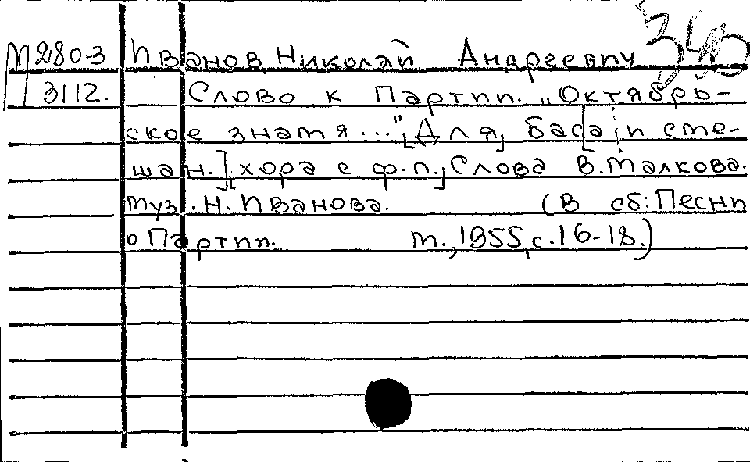 М 280-3 Иванов, Николай Андреевич 345
3112. Слово к Партии. „Октябрь-
ское знамя..." [Для] баса [и сме-
шан.] [хора с ф.п.] Слова В. Малкова.
Муз. Н. Иванова. (В сб: Песни
о Партии. М., 1955, с. 16-18.)